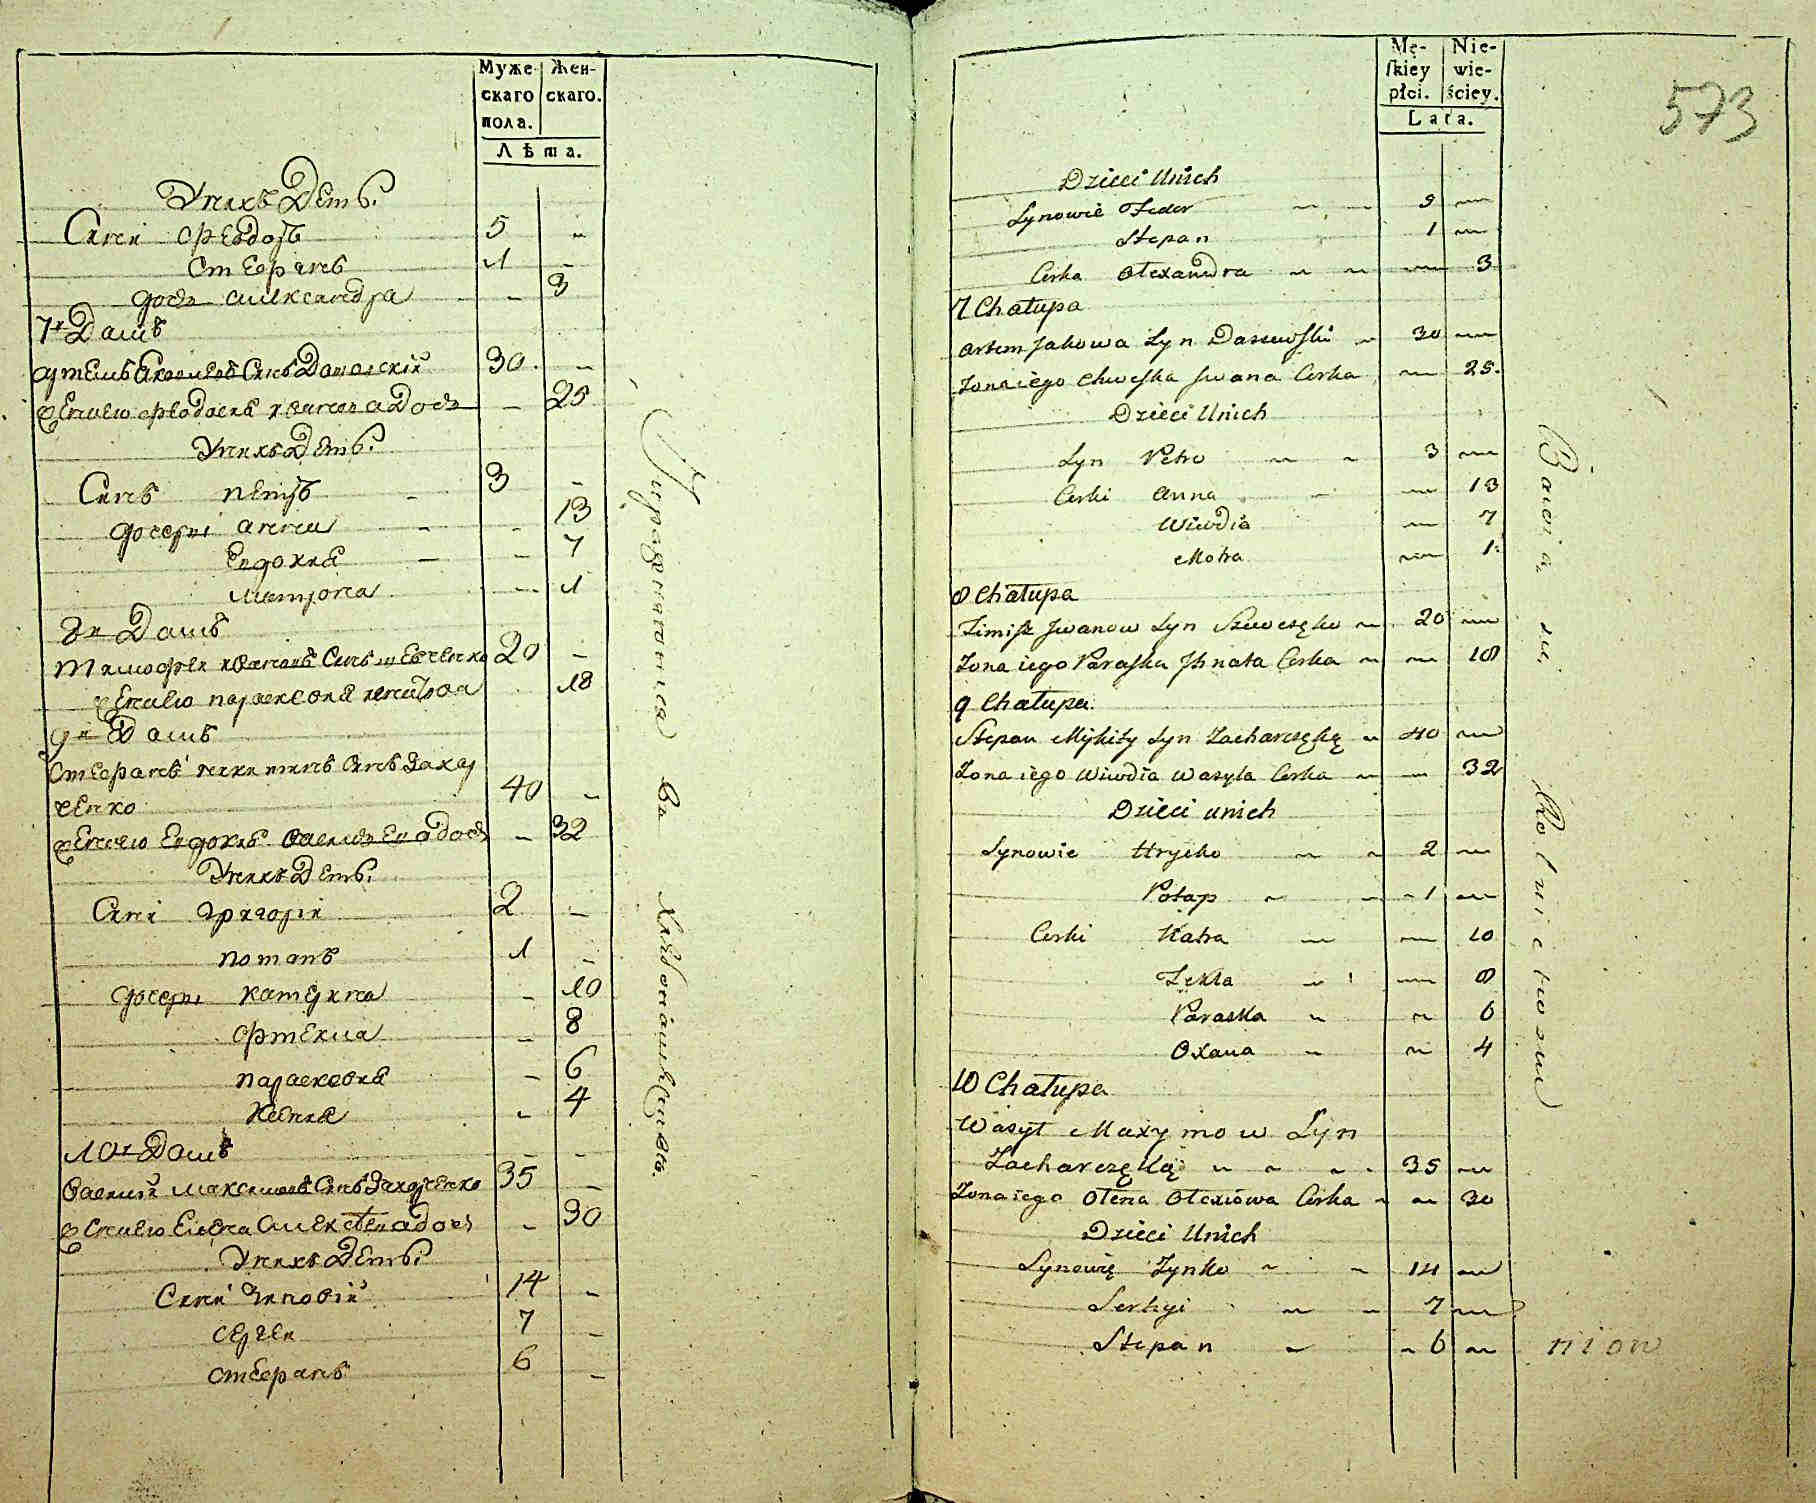 Муже-
скаго
пола.
Жен-
скаго.
Лѣта.
У нихъ Дети.
Сини Феодоръ 5 -
Стефанъ 1 -
дочь александра - 3
7й Домъ
артемъ Яковлевъ Синъ 30 -
жена его ивановна дочь - 25
У нихъ Дети.
Синъ петръ 3 -
дочери анна - 13
Евдокия - 7
матрона - 1
8й Домъ
тимофей ивановъ Синъ 20 -
жена его параскевия - 18
9й Домъ
Стефанъ никитинъ Синъ захар
ченко 40 -
жена его Евдокия василиева дочь - 32
У нихъ Дети.
Сини григорий 2 -
потапъ 1 -
дочери катерина - 10
фтекла - 8
параскевия - 6
ксения - 4
10й Домъ - -
василий максимовъ Синъ захарченко 35 -
жена его Елена алексеева дочь - 30
У нихъ Дети.
Сини зиновий 14 -
сергей 7 -
стефанъ 6 -
Mę-
ſkiey
płci.
Nie-
wie-
ściey.
Lata.
573
Dzieci Unich
Synowie Fedor 5
Stepan 1
Corka Olexandra 3
7 Chałupa
Artem Jakowa Syn Daszewski 30
Zona iego Chweſka Jwana Corka 25.
Dzieci Unich
Syn Petro 3
Corki Anna 13
Wiwdia 7
Motra 1
8 Chałupa
Timisz Jwanow Syn 20
Zona iego Paraſka Jhnata Corka 18
9 Chałupa
Stepan Mykity Syn Zacharczęką 40
Zona iego Wiwdia Wasyla Corka 32
Dzieci unich
Synowie Hryćko 2
Potap 1
Corki Katra 10
Tekla 8
Paraska 6
Oxana 4
10 Chałupa
Wasyl Maxymow Syn
Zacharczęką 35
Zona iego Olena Olexiowa Corka 30
Dzieci Unich
Synowie Zynko 14
Serhyi 7
Stepan 6
niow